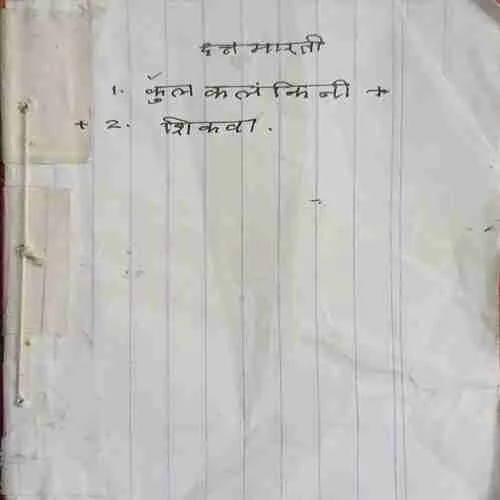 दत्त भारती
1. कुॅल कलंकिनी +
+ 2. शिकवा.